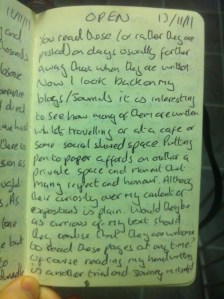 OPEN 13/11/11
You read these (or rather they are
posted) on days usually further
away than when they are written.
Now I look back on my
blogs/sounds it is interesting
to see how many of them are written
whilst travelling or at a cafe or
some social shared space. Putting
pen to paper affords an author a
private space and moment that
many respect and honour. Although
their curiosity over my content of
expositions is plain. Would they be
as curious of my text should
they realise that they are welcome
to read these pages at any time?
Of course reading my handwriting
is another trial and journey in itself